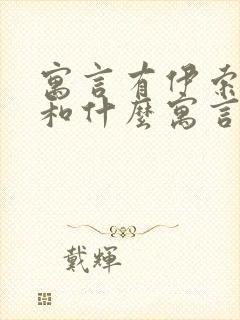 寓言有伊索
和什麼寓言
戴輝